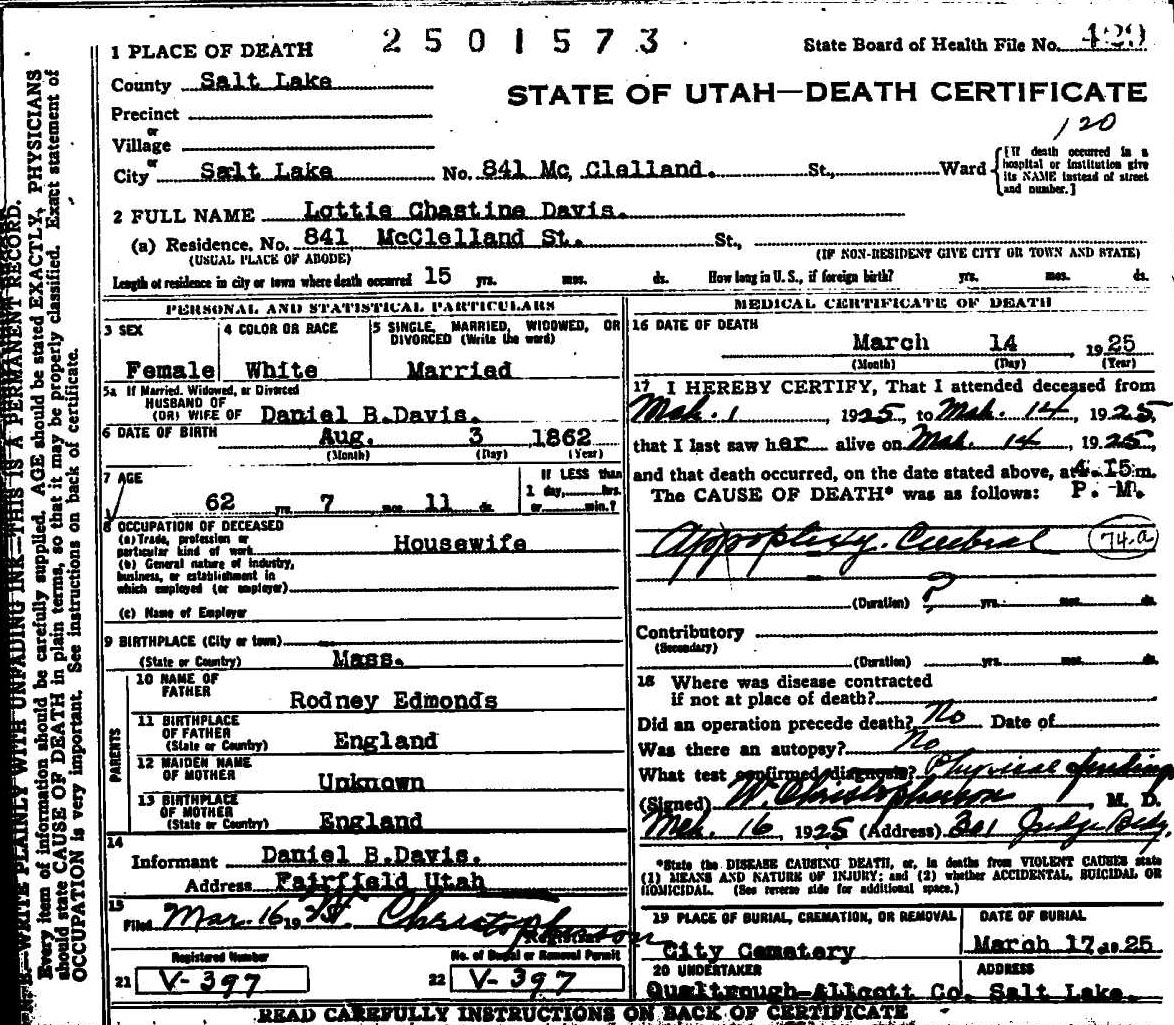 2501573
State Board of Health File No.
1 PLACE OF DEATH
County Salt Lake
STATE OF UTAH—DEATH CERTIFICATE
Precinct
or
Village
120
or
City Salt Lake No. 841 Mc, Clelland. St., Ward
[If death occurred in a
hospital or institution give
its NAME instead of street
and number.]
2 FULL NAME Lottie Chastine Davis.
(a) Residence. No. 841 McClelland St. St.,
(USUAL PLACE OF ABODE) (IF NON-RESIDENT GIVE CITY OR TOWN AND STATE)
Length of residence in city or town where death occurred 15 yrs. mos. ds. How long in U. S., if foreign birth? yrs. mos. ds.
PERSONAL AND STATISTICAL PARTICULARS
3 SEX
Female
4 COLOR OR RACE
White
5 SINGLE, MARRIED, WIDOWED, OR
DIVORCED (Write the word)
Married
5a If Married, Widowed, or Divorced
HUSBAND OF
(OR) WIFE OF Daniel B.Davis.
6 DATE OF BIRTH Aug. 3 1862
(Month) (Day) (Year)
7 AGE
62 yrs. 7 mos. 11 ds.
If LESS than
1 day, hrs.
or min.?
8 OCCUPATION OF DECEASED
(a) Trade, profession or
particular kind of work Housewife
(b) General nature of industry,
business, or establishment in
which employed (or employer)
(c) Name of Employer
9 BIRTHPLACE (City or town)
(State or Country) Mass.
PARENTS
10 NAME OF
FATHER Rodney Edmonds
11 BIRTHPLACE
OF FATHER
(State or Country) England
12 MAIDEN NAME
OF MOTHER Unknown
13 BIRTHPLACE
OF MOTHER
(State or Country) England
14
Informant Daniel B.Davis.
Address Fairfield Utah
15
Filed Mar. 16 19 Christopherson
Registrar
Registered Number
21 V-397
No. of Burial or Removal Permit
22 V-397
MEDICAL CERTIFICATE OF DEATH
16 DATE OF DEATH
March 14 1925
(Month) (Day) (Year)
17 I HEREBY CERTIFY, That I attended deceased from
Mch. 1, 1925, to Mch. 14, 1925,
that I last saw her alive on Mch. 14, 1925,
and that death occurred, on the date stated above, at 4.15 m.
The CAUSE OF DEATH* was as follows: P. M.
Appoplexy. Cerebral 74.a
(Duration) ? yrs. mos. ds.
Contributory
(Secondary)
(Duration) yrs. mos. ds.
18 Where was disease contracted
if not at place of death?
Did an operation precede death? No Date of
Was there an autopsy? No
What test confirmed diagnosis? Physical finding
(Signed) W. Christopherson, M. D.
Mch. 16, 1925 (Address) 301 Judge Bldg.
*State the DISEASE CAUSING DEATH, or, in deaths from VIOLENT CAUSES state
(1) MEANS AND NATURE OF INJURY; and (2) whether ACCIDENTAL, SUICIDAL OR
HOMICIDAL. (See reverse side for additional space.)
19 PLACE OF BURIAL, CREMATION, OR REMOVAL
City Cemetery
DATE OF BURIAL
March 17, 1925
20 UNDERTAKER
Qualtrough-Allcott Co.
ADDRESS
Salt Lake.
READ CAREFULLY INSTRUCTIONS ON BACK OF CERTIFICATE
WRITE PLAINLY WITH UNFADING INK—THIS IS A PERMANENT RECORD.
Every item of information should be carefully supplied. AGE should be stated EXACTLY, PHYSICIANS
should state CAUSE OF DEATH in plain terms, so that it may be properly classified. Exact statement of
OCCUPATION is very important. See instructions on back of certificate.